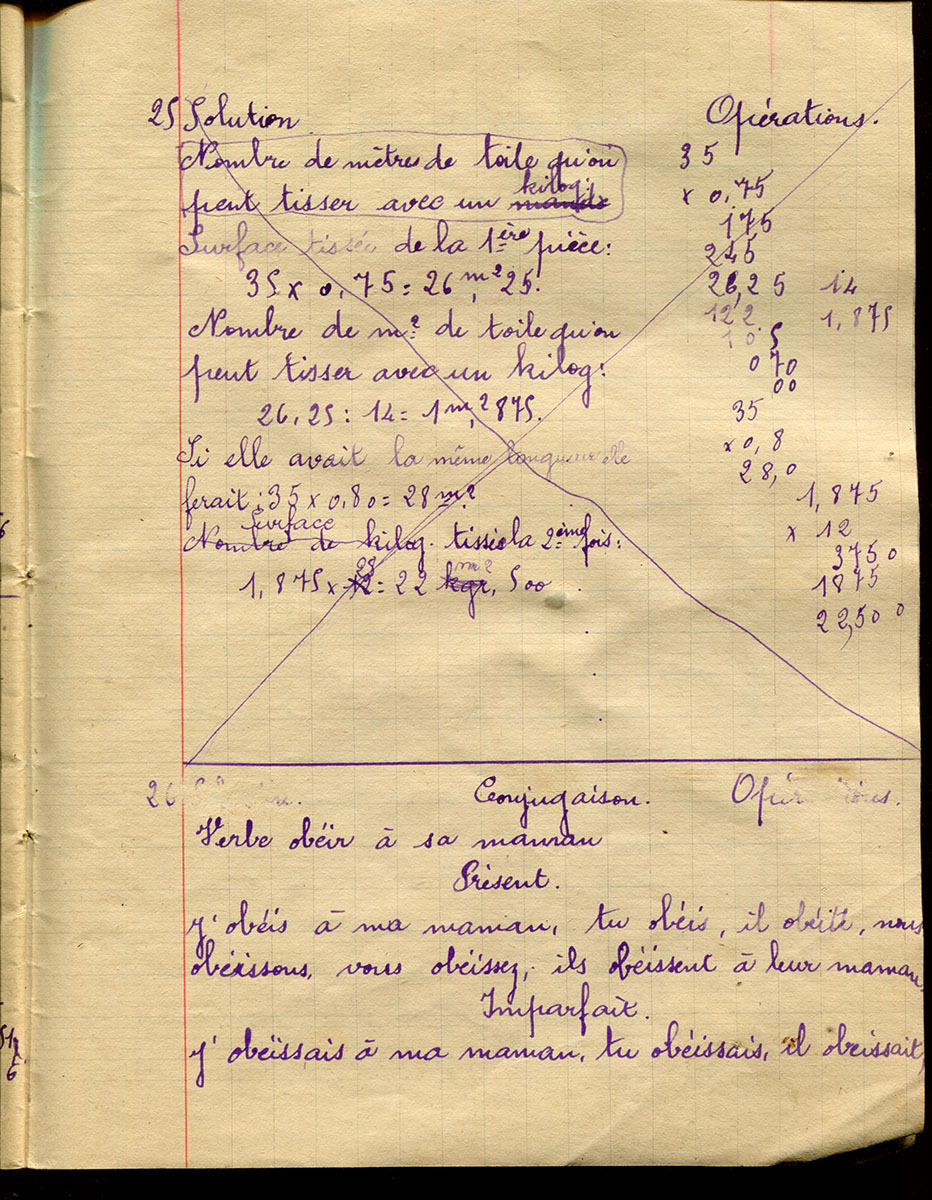 25 Solution Opérations.
Nombre de mètres de toile qu'on
kilog:
peut tisser avec un
Surface tissée de la 1ère pièce:
35 x 0,75 = 26 m2, 25.
Nombre de m2 de toile qu'on
peut tisser avec un kilog:
26,25 : 14 = 1 m2, 875.
Si elle avait la même longueur elle
ferait : 35 x 0,80 = 28 m2
Surface
Nombre de kilog. tissée la 2ème fois:
28 m2
1,875 x 12 = 22 kgr, 500
35
x 0,75
175
245
26,25 14
12 2 1,875
1 0 5
0 70
00
35
x 0,8
28,0
1,875
x 12
3750
1875
22,500
26 Conjugaison. Opérations.
Verbe obéir à sa maman
Présent.
j'obéis à ma maman, tu obéis, il obéit, nous
obéissons, vous obéissez, ils obéissent à leur maman,
Imparfait.
j'obéissais à ma maman, tu obéissais, il obéissait,